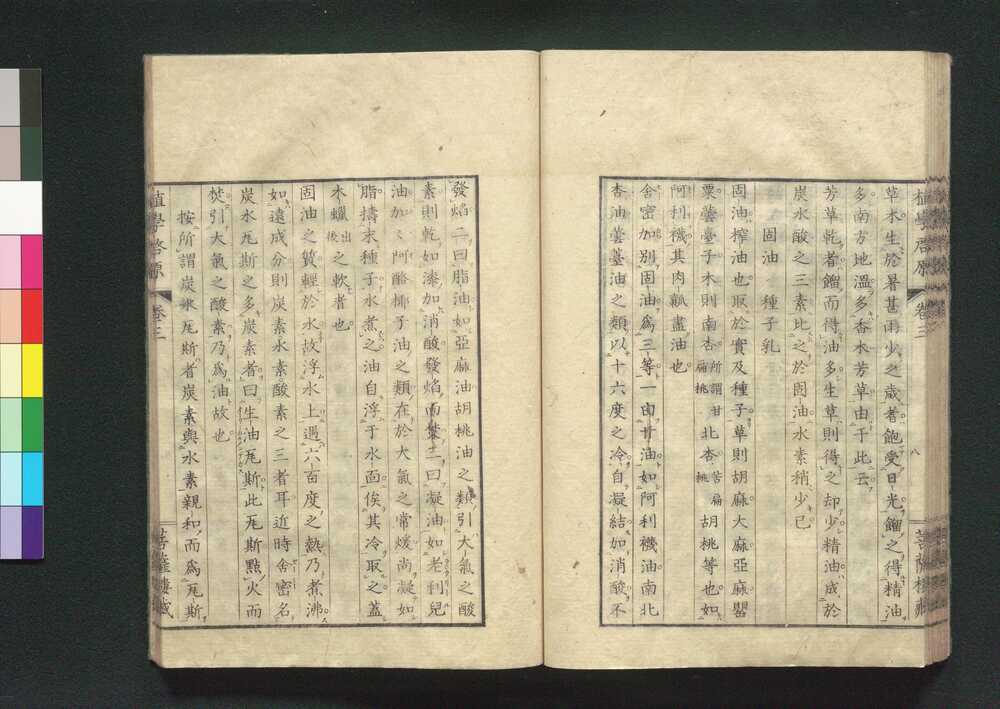 植學啓原
卷三
八
菩薩樓藏
草木生於暑甚雨少之歳者飽受日光餾之得精油
多南方地溫多香木芳草由于此云
芳草乾者餾而得油多生草則得之却少精油成於
炭水酸之三素比之於固油水素稍少已
固油 種子乳
固油搾油也取於實及種子草則胡麻大麻亞麻罌
粟蕓薹子木則南杏所謂甘扁桃北杏苦扁桃胡桃等也如
阿利襪其肉瓤盡油也
舍密加別固油爲三等一曰甘油如阿利襪油南北
杏油蕓薹油之類以十六度之冷自凝結如消酸不
發焰二曰脂油如亞麻油胡桃油之類引大氣之酸
素則乾如漆加消酸發焰而業三曰凝油如老利兒
油加々阿酪椰子油之類在於大氣之常煖尚凝如
脂擣末種子水煮之油自浮于水面俟其冷取之蓋
木蠟出後之軟者也
固油之質輕於水故浮水上遇六百度之熱乃煮沸
如遠成分則炭素水素酸素之三者耳近時舍密名
炭水瓦斯之多炭素者曰生油瓦斯此瓦斯點火而
焚引大氣之酸素乃爲油故也
按所謂炭水瓦斯者炭素與水素親和而爲瓦斯
植學啓原
卷三
菩薩樓藏